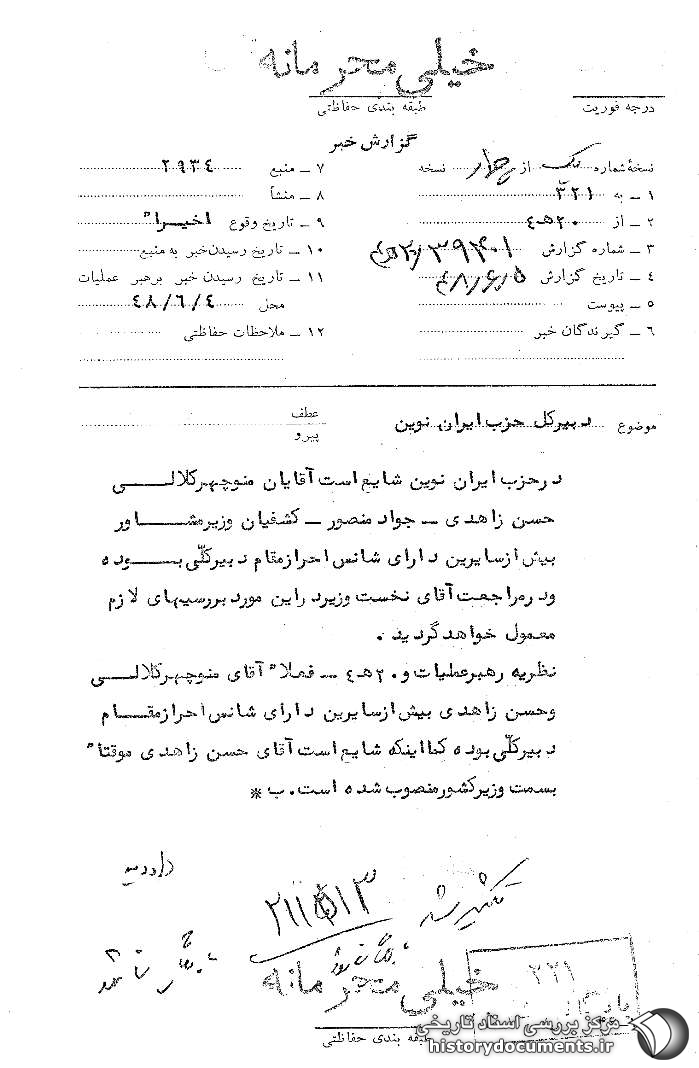 خیلی محرمانه
طبقه بندی حفاظتی
درجه فوریت
گزارش خبر
نسخهٔ شماره یک از چهار نسخه
۱ – به ۳۲۱
۲ – از ۲۰ ه‍ ٤
۳ – شماره گزارش
٤ – تاریخ گزارش ۴۸/۶/۵
۵ – پیوست
۶ – گیرندگان خبر
۷ – منبع ۲۹۳٤
۸ – منشأ
۹ – تاریخ وقوع اخیراً
۱۰ – تاریخ رسیدن خبر به منبع
۱۱ – تاریخ رسیدن خبر برهبر عملیات
محل ٤۸/۶/٤
۱۲ – ملاحظات حفاظتی
موضوع دبیرکل حزب ایران نوین
عطف
پیرو
در حزب ایران نوین شایع است آقایان منوچهر کلالی
حسن زاهدی – جواد منصور – کشفیان وزیر مشاور
بیش از سایرین دارای شانس احراز مقام دبیرکلّی بوده
و در مراجعت آقای نخست وزیر در این مورد بررسیهای لازم
معمول خواهد گردید .
نظریه رهبر عملیات و ۲۰ ه‍ ٤ – فعلاً آقای منوچهر کلالی
و حسن زاهدی بیش از سایرین دارای شانس احراز مقام
دبیرکلّی بوده کما اینکه شایع است آقای حسن زاهدی موقتاً
بسمت وزیر کشور منصوب شده است. ب *
تکثیر شد
بایگانی شود
خیلی محرمانه
طبقه بندی حفاظتی
۳۲۱
مرکز بررسی اسناد تاریخی
historydocuments.ir